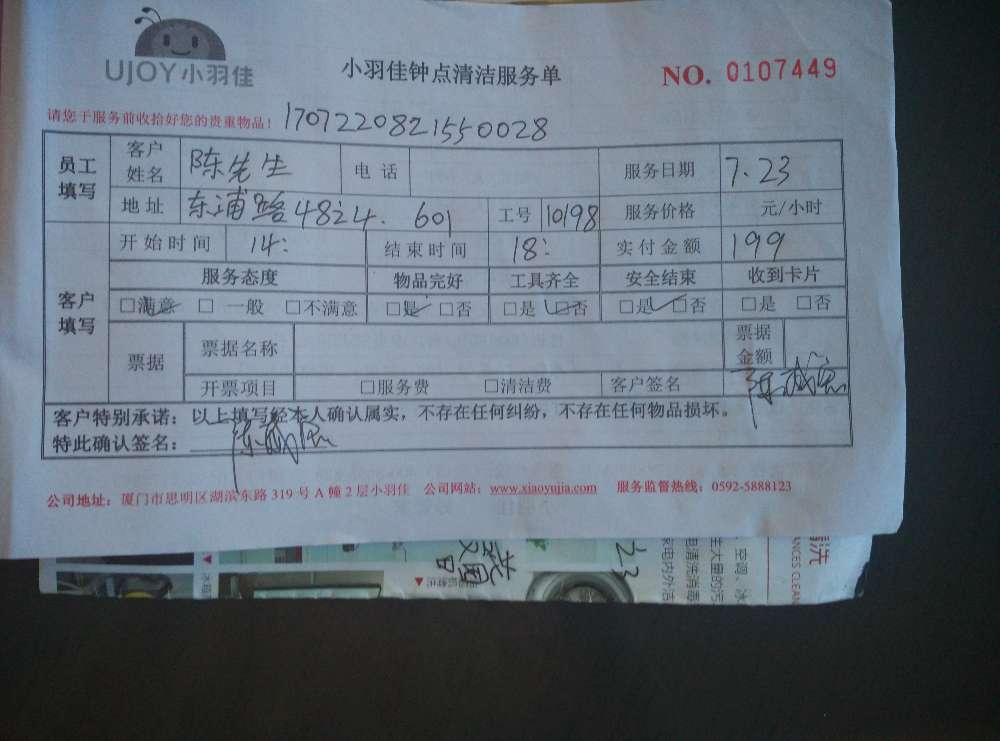 UJOY小羽佳
小羽佳钟点清洁服务单
NO. 0107449
请您于服务前收拾好您的贵重物品！ 1707220821550028
员工填写 客户姓名 陈先生 电话 服务日期 7.23
地址 东浦路48之4. 601 工号 10198 服务价格 元/小时
客户填写 开始时间 14: 结束时间 18: 实付金额 199
服务态度 物品完好 工具齐全 安全结束 收到卡片
□满意 □一般 □不满意 □是 □否 □是 □否 □是 □否 □是 □否
票据 票据名称 票据金额
开票项目 □服务费 □清洁费 客户签名
客户特别承诺：以上填写经本人确认属实，不存在任何纠纷，不存在任何物品损坏。
特此确认签名：
公司地址：厦门市思明区湖滨东路319号A幢2层小羽佳 公司网站：www.xiaoyujia.com 服务监督热线：0592-5888123
23
清洗
ANCES CLEAN